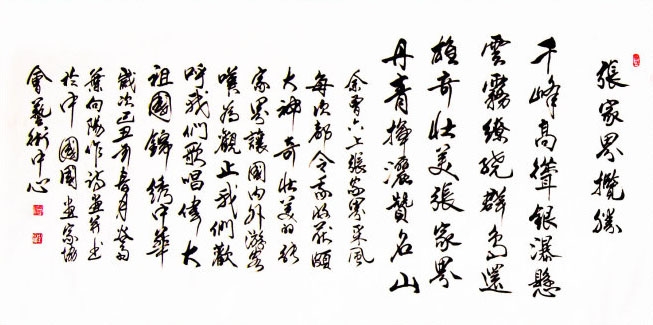 張家界攬勝
千峰高聳銀瀑懸
雲霧繚繞群島還
雄奇壯美張家界
丹青揮灑贊名山
余曾六上張家界采風
每次都令我收获頗
大神奇壯美的張
家界讓國内外游客
嘆為觀止我們歡
呼我們歌唱偉大
祖國錦綉中華
歲次己丑年春月葵南
葉向陽作詩並書
於中國國画家協
會藝術中心